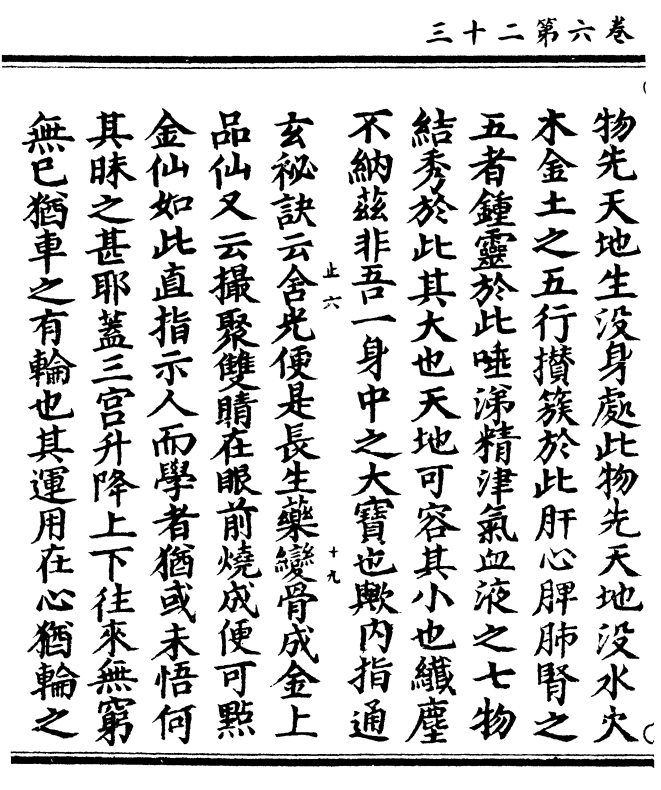 卷六第二十三
物先天地生没身處此物先天地没水火
木金土之五行攅簇於此肝心脾肺腎之
五者鍾靈於此唾涕精津氣血液之七物
結秀於此其大也天地可容其小也纎塵
不納兹非吾一身中之大寶也歟内指通
玄祕訣云含光便是長生藥變骨成金上
止六
十九
品仙又云撮聚雙睛在眼前燒成便可點
金仙如此直指示人而學者猶或未悟何
其昧之甚耶蓋三宫升降上下往來無窮
無已猶車之有輪也其運用在心猶輪之